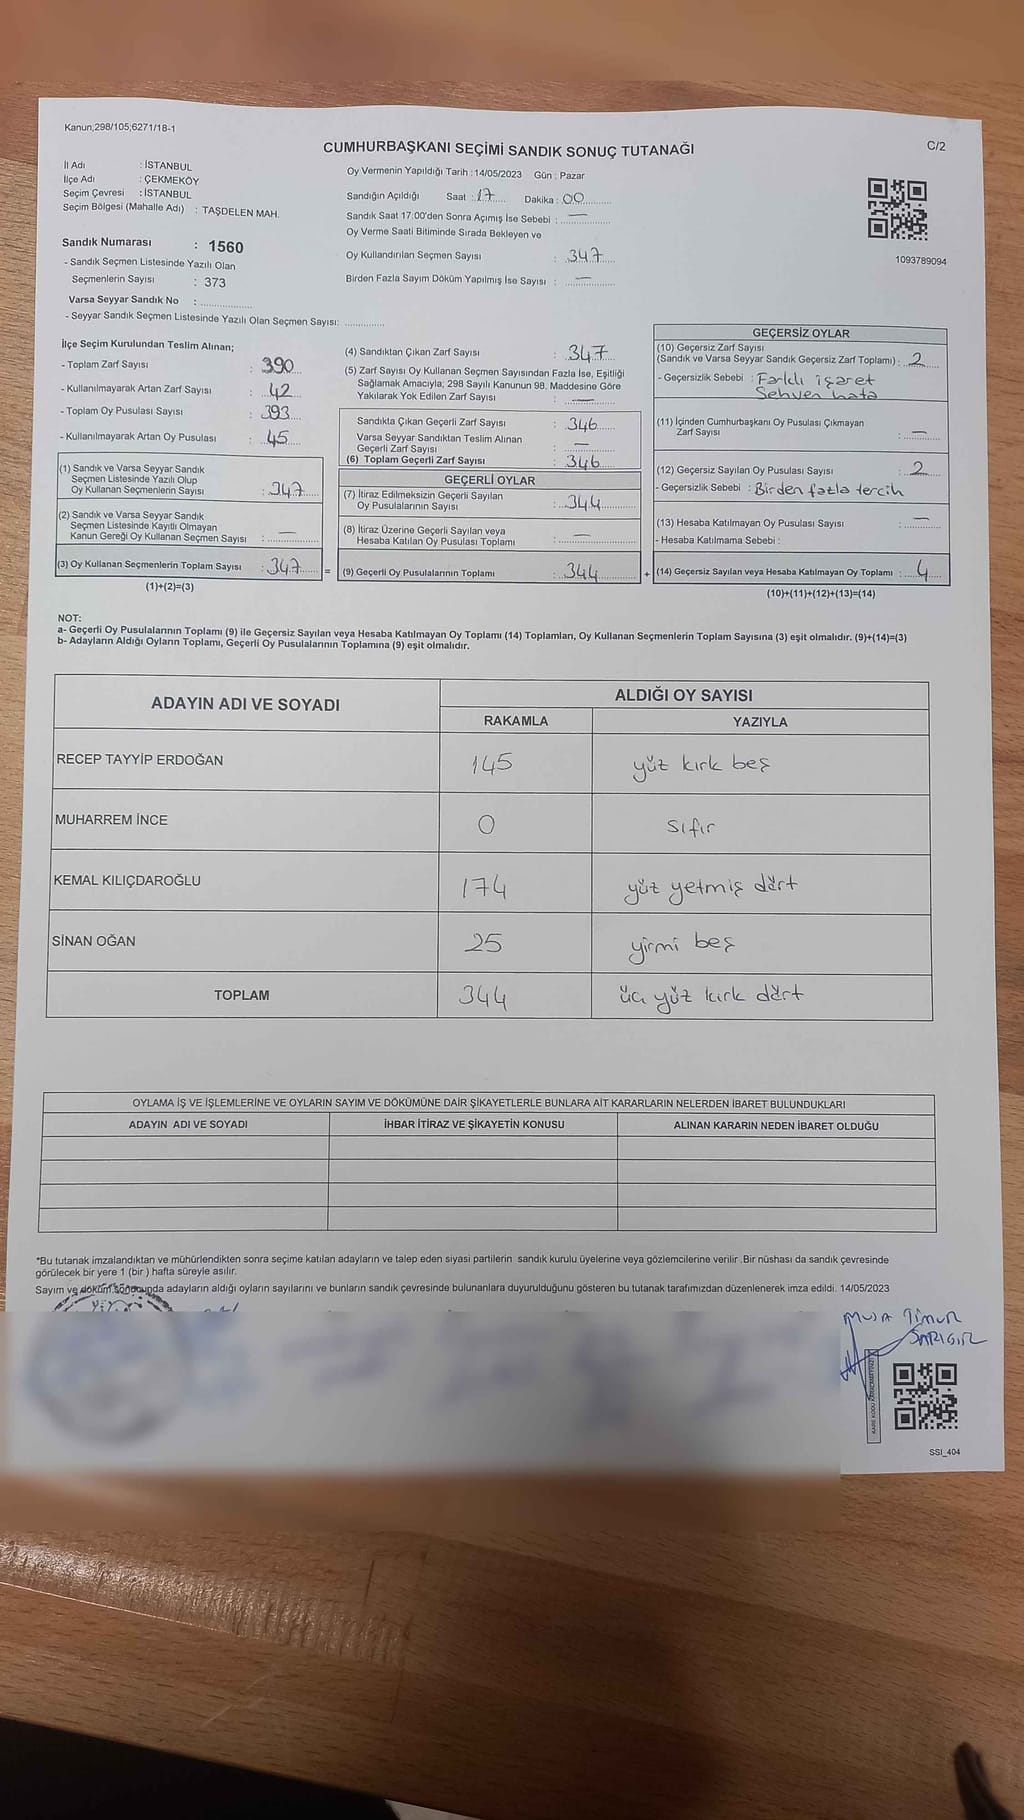 Kanun;298/105;6271/18-1
CUMHURBAŞKANI SEÇİMİ SANDIK SONUÇ TUTANAĞI
C/2
İl Adı : İSTANBUL
İlçe Adı : ÇEKMEKÖY
Seçim Çevresi : İSTANBUL
Seçim Bölgesi (Mahalle Adı) : TAŞDELEN MAH.
Sandık Numarası : 1560
- Sandık Seçmen Listesinde Yazılı Olan
Seçmenlerin Sayısı : 373
Varsa Seyyar Sandık No : ..............
- Seyyar Sandık Seçmen Listesinde Yazılı Olan Seçmen Sayısı: ............
Oy Vermenin Yapıldığı Tarih : 14/05/2023 Gün : Pazar
Sandığın Açıldığı Saat : 17 Dakika : 00
Sandık Saat 17.00'den Sonra Açımış İse Sebebi : —
Oy Verme Saati Bitiminde Sırada Bekleyen ve
Oy Kullandırılan Seçmen Sayısı : 347
Birden Fazla Sayım Döküm Yapılmış İse Sayısı : —
1093789094
İlçe Seçim Kurulundan Teslim Alınan;
- Toplam Zarf Sayısı : 390
- Kullanılmayarak Artan Zarf Sayısı : 42
- Toplam Oy Pusulası Sayısı : 393
- Kullanılmayarak Artan Oy Pusulası : 45
(1) Sandık ve Varsa Seyyar Sandık
Seçmen Listesinde Yazılı Olup
Oy Kullanan Seçmenlerin Sayısı : 347
(2) Sandık ve Varsa Seyyar Sandık
Seçmen Listesinde Kayıtlı Olmayan
Kanun Gereği Oy Kullanan Seçmen Sayısı : —
(3) Oy Kullanan Seçmenlerin Toplam Sayısı : 347 =
(1)+(2)=(3)
(4) Sandıktan Çıkan Zarf Sayısı : 347
(5) Zarf Sayısı Oy Kullanan Seçmen Sayısından Fazla İse, Eşitliği
Sağlamak Amacıyla; 298 Sayılı Kanunun 98. Maddesine Göre
Yakılarak Yok Edilen Zarf Sayısı : —
Sandıkta Çıkan Geçerli Zarf Sayısı : 346
Varsa Seyyar Sandıktan Teslim Alınan
Geçerli Zarf Sayısı : —
(6) Toplam Geçerli Zarf Sayısı : 346
GEÇERLİ OYLAR
(7) İtiraz Edilmeksizin Geçerli Sayılan
Oy Pusulasının Sayısı : 344
(8) İtiraz Üzerine Geçerli Sayılan veya
Hesaba Katılan Oy Pusulası Toplamı : —
(9) Geçerli Oy Pusulalarının Toplamı : 344 +
GEÇERSİZ OYLAR
(10) Geçersiz Zarf Sayısı
(Sandık ve Varsa Seyyar Sandık Geçersiz Zarf Toplamı) : 2
- Geçersizlik Sebebi : Farklı işaret
Sehven hata
(11) İçinden Cumhurbaşkanı Oy Pusulası Çıkmayan
Zarf Sayısı : —
(12) Geçersiz Sayılan Oy Pusulası Sayısı : 2
- Geçersizlik Sebebi : Birden fazla tercih
(13) Hesaba Katılmayan Oy Pusulası Sayısı : —
- Hesaba Katılmama Sebebi :
(14) Geçersiz Sayılan veya Hesaba Katılmayan Oy Toplamı : 4
(10)+(11)+(12)+(13)=(14)
NOT:
a- Geçerli Oy Pusulalarının Toplamı (9) ile Geçersiz Sayılan veya Hesaba Katılmayan Oy Toplamı (14) Toplamları, Oy Kullanan Seçmenlerin Toplam Sayısına (3) eşit olmalıdır. (9)+(14)=(3)
b- Adayların Aldığı Oyların Toplamı, Geçerli Oy Pusulalarının Toplamına (9) eşit olmalıdır.
ADAYIN ADI VE SOYADI ALDIĞI OY SAYISI
RAKAMLA YAZIYLA
RECEP TAYYİP ERDOĞAN 145 yüz kırk beş
MUHARREM İNCE 0 sıfır
KEMAL KILIÇDAROĞLU 174 yüz yetmiş dört
SİNAN OĞAN 25 yirmi beş
TOPLAM 344 üç yüz kırk dört
OYLAMA İŞ VE İŞLEMLERİNE VE OYLARIN SAYIM VE DÖKÜMÜNE DAİR ŞİKAYETLERLE BUNLARA AİT KARARLARIN NELERDEN İBARET BULUNDUKLARI
ADAYIN ADI VE SOYADI İHBAR İTİRAZ VE ŞİKAYETİN KONUSU ALINAN KARARIN NEDEN İBARET OLDUĞU
*Bu tutanak imzalandıktan ve mühürlendikten sonra seçime katılan adayların ve talep eden siyasi partilerin sandık kurulu üyelerine veya gözlemcilerine verilir .Bir nüshası da sandık çevresinde
görülecek bir yere 1 (bir ) hafta süreyle asılır.
Sayım ve döküm sonucunda adayların aldığı oyların sayılarını ve bunların sandık çevresinde bulunanlara duyurulduğunu gösteren bu tutanak tarafımızdan düzenlenerek imza edildi. 14/05/2023
MUSA TİMUR
SARIGÜL
SSI_404